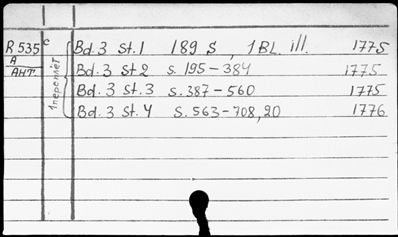 R 535 c
A
АНТ.
1 переплёт
Bd. 3 St. 1 189 S, 1 BL. ill. 1775
Bd. 3 St 2 S. 195-384 1775
Bd. 3 St. 3 S. 387-560 1775
Bd. 3 St. 4 S. 563-708, 20 1776